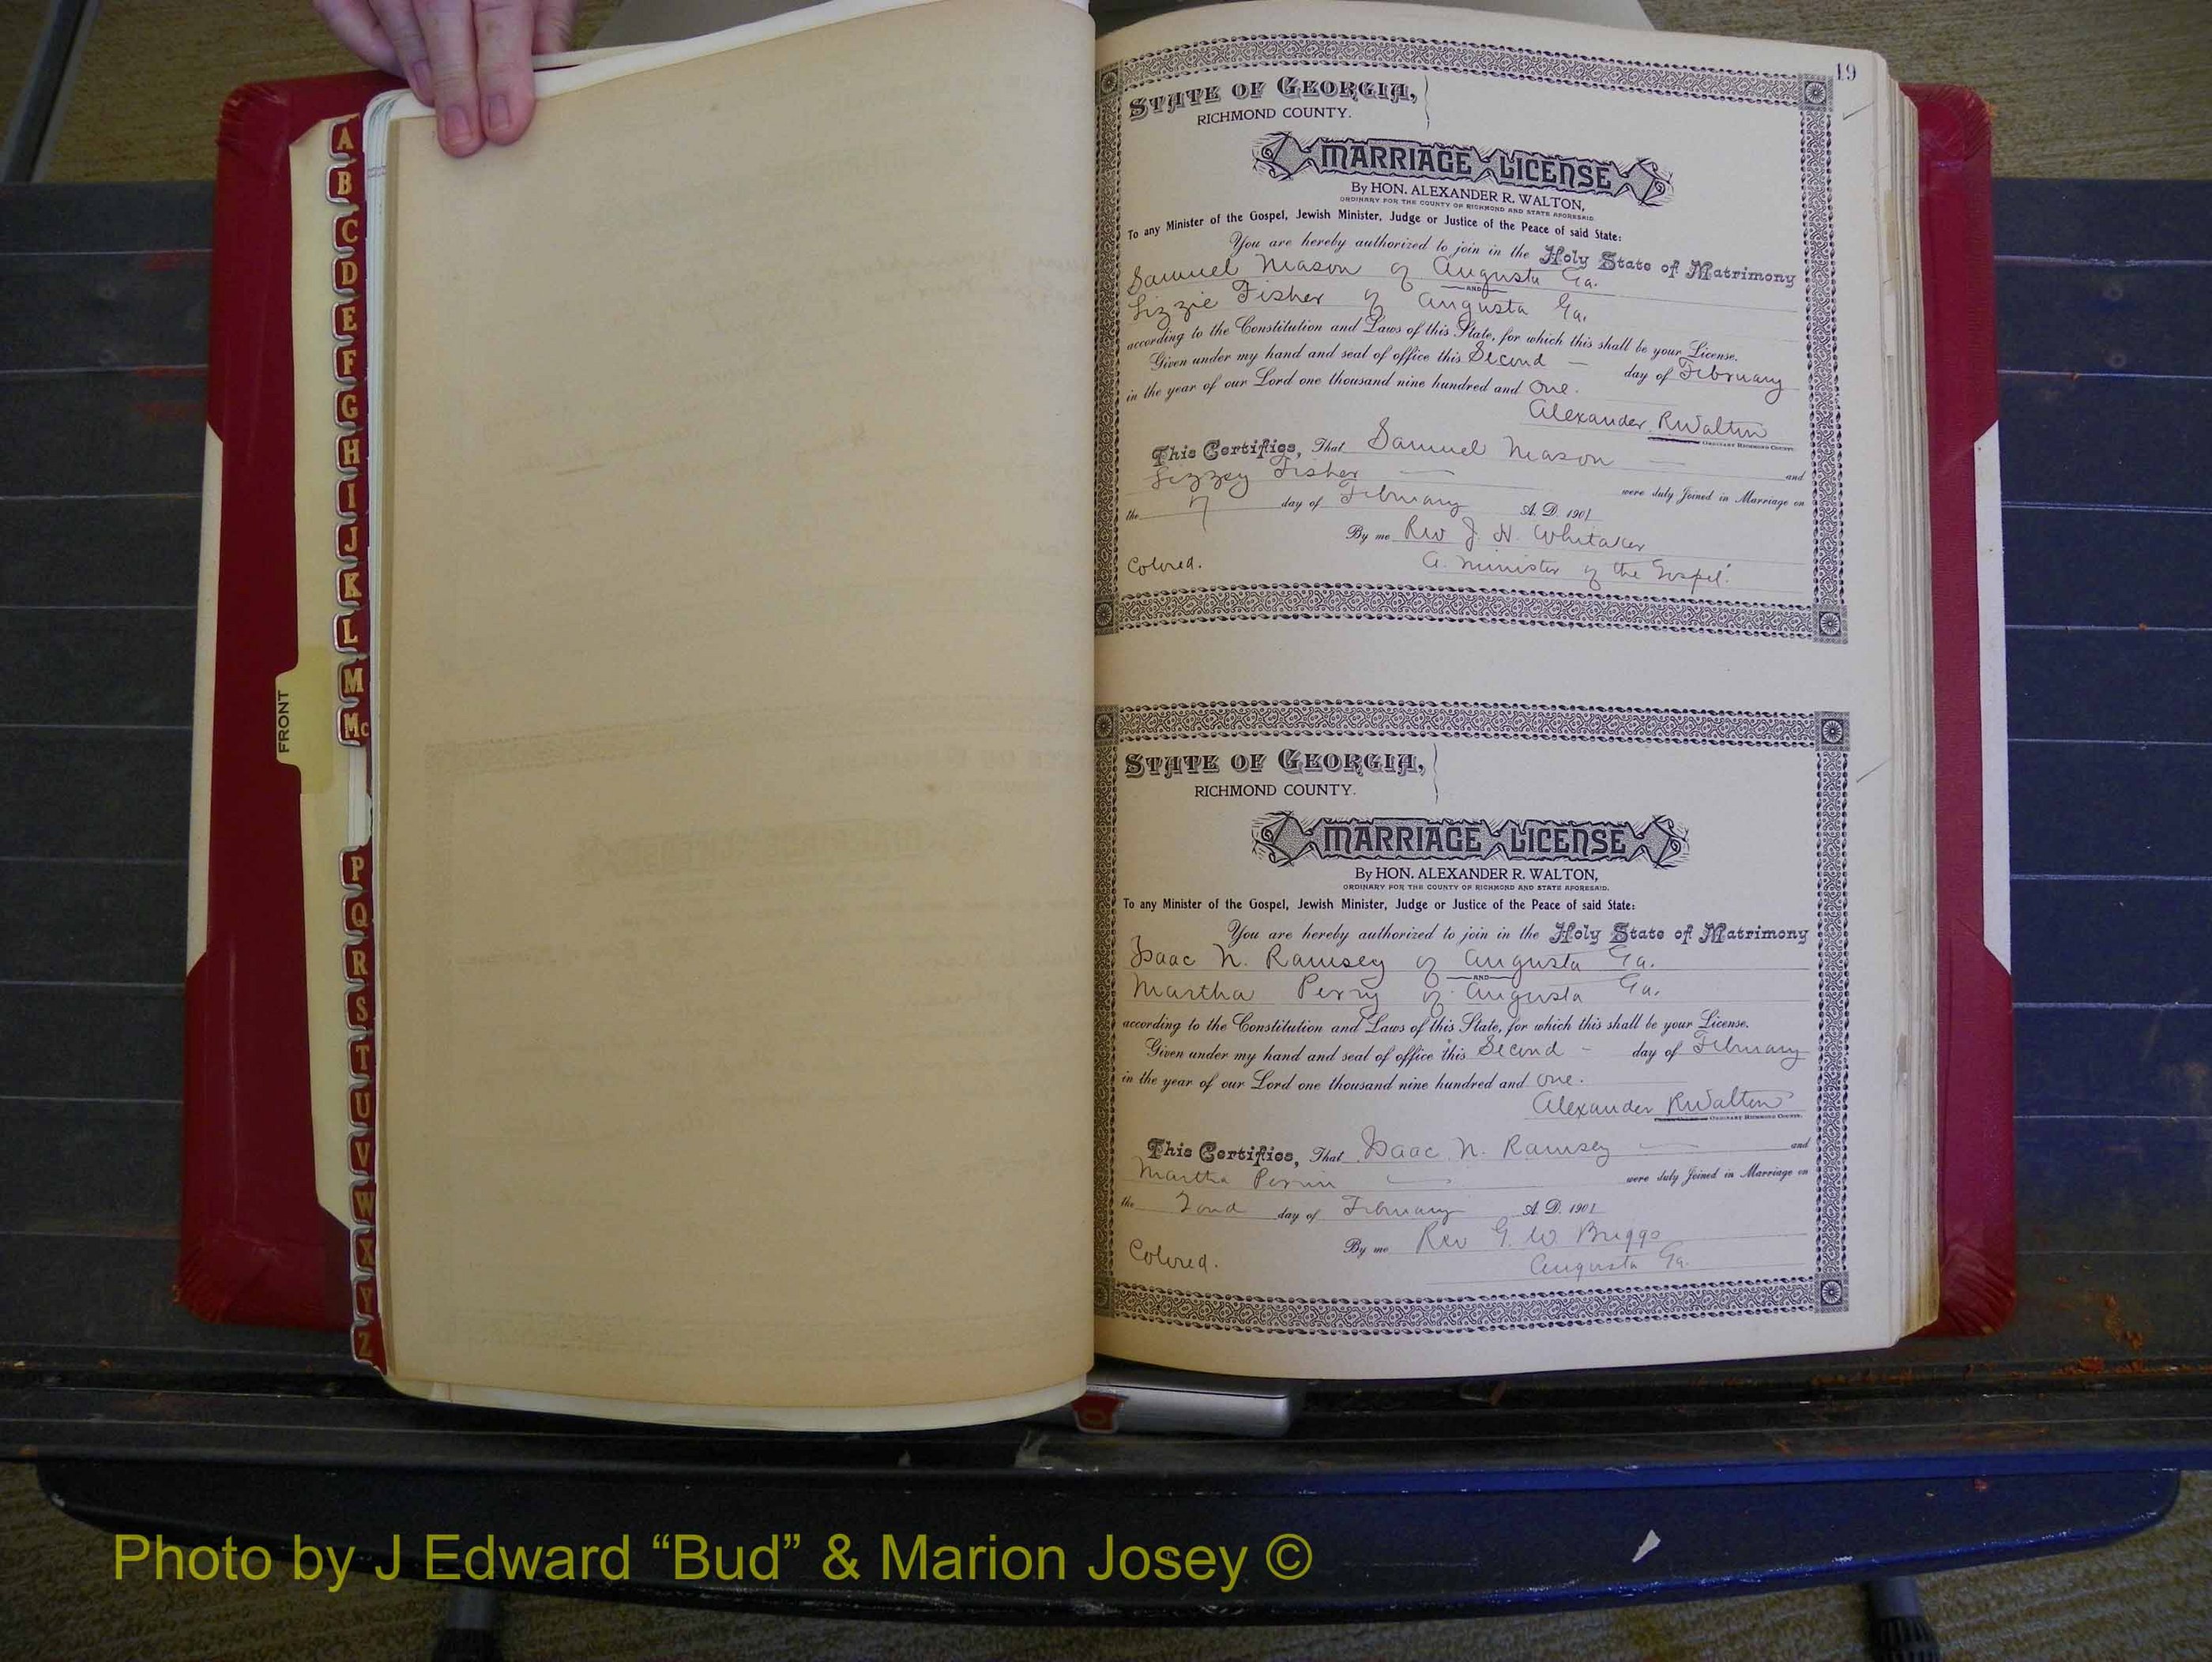 A
B
C
D
E
F
G
H
I
J
K
L
M
Mc
P
Q
R
S
T
U
V
W
X
Y
Z
FRONT
19
STATE OF GEORGIA,
RICHMOND COUNTY.
MARRIAGE LICENSE
By HON. ALEXANDER R. WALTON,
ORDINARY FOR THE COUNTY OF RICHMOND AND STATE AFORESAID.
To any Minister of the Gospel, Jewish Minister, Judge or Justice of the Peace of said State:
You are hereby authorized to join in the Holy State of Matrimony
Samuel Mason of Augusta Ga.
AND
Lizzie Fisher of Augusta Ga.
according to the Constitution and Laws of this State, for which this shall be your License.
Given under my hand and seal of office this Second — day of February
in the year of our Lord one thousand nine hundred and One.
Alexander R Walton
ORDINARY RICHMOND COUNTY.
This Certifies, That Samuel Mason — and
Lizzey Fisher — were duly Joined in Marriage on
the 7 day of February A. D. 1901
By me Rev J. H. Whitaker
Colored. A. Minister of the Gospel.
STATE OF GEORGIA,
RICHMOND COUNTY.
MARRIAGE LICENSE
By HON. ALEXANDER R. WALTON,
ORDINARY FOR THE COUNTY OF RICHMOND AND STATE AFORESAID.
To any Minister of the Gospel, Jewish Minister, Judge or Justice of the Peace of said State:
You are hereby authorized to join in the Holy State of Matrimony
Isaac N. Ramsey of Augusta Ga.
AND
Martha Perry of Augusta Ga.
according to the Constitution and Laws of this State, for which this shall be your License.
Given under my hand and seal of office this Second — day of February
in the year of our Lord one thousand nine hundred and One.
Alexander R Walton
ORDINARY RICHMOND COUNTY.
This Certifies, That Isaac N. Ramsey — and
Martha Perrin — were duly Joined in Marriage on
the 2ond day of February A. D. 1901
By me Rev G. W Briggs
Colored. Augusta Ga.
O
Photo by J Edward “Bud” & Marion Josey ©